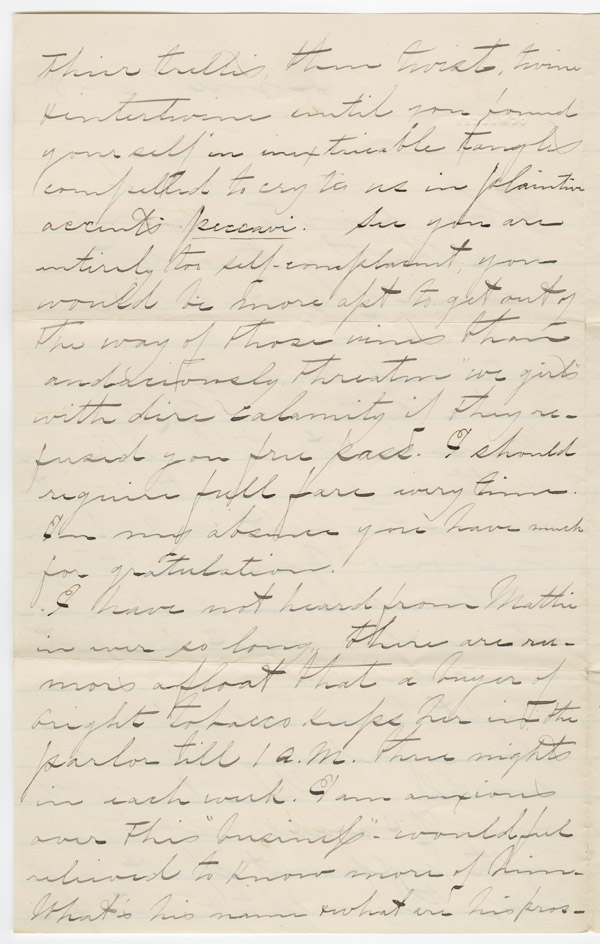 their trellis, them twist, twine
& intertwine until you found
yourself in inextricable tangles
compelled to cry to us in plaintive
accents peccavi. See you are
entirely too self-complaint, you
would be more apt to get out of
the way of those vines than
audaciously threaten "we girls"
with dire calamity if they re-
fused you free pass. I should
require full fare every time.
In my absence you have much
for gratulation.
I have not heard from Mattie
in ever so long, there are ru-
mors afloat that a buyer of
bright tobacco keeps her in the
parlor till 1 a.m. three nights
in each week. I am anxious
over this "business" - would feel
relieved to know more of him.
What's his name & what are his pros-